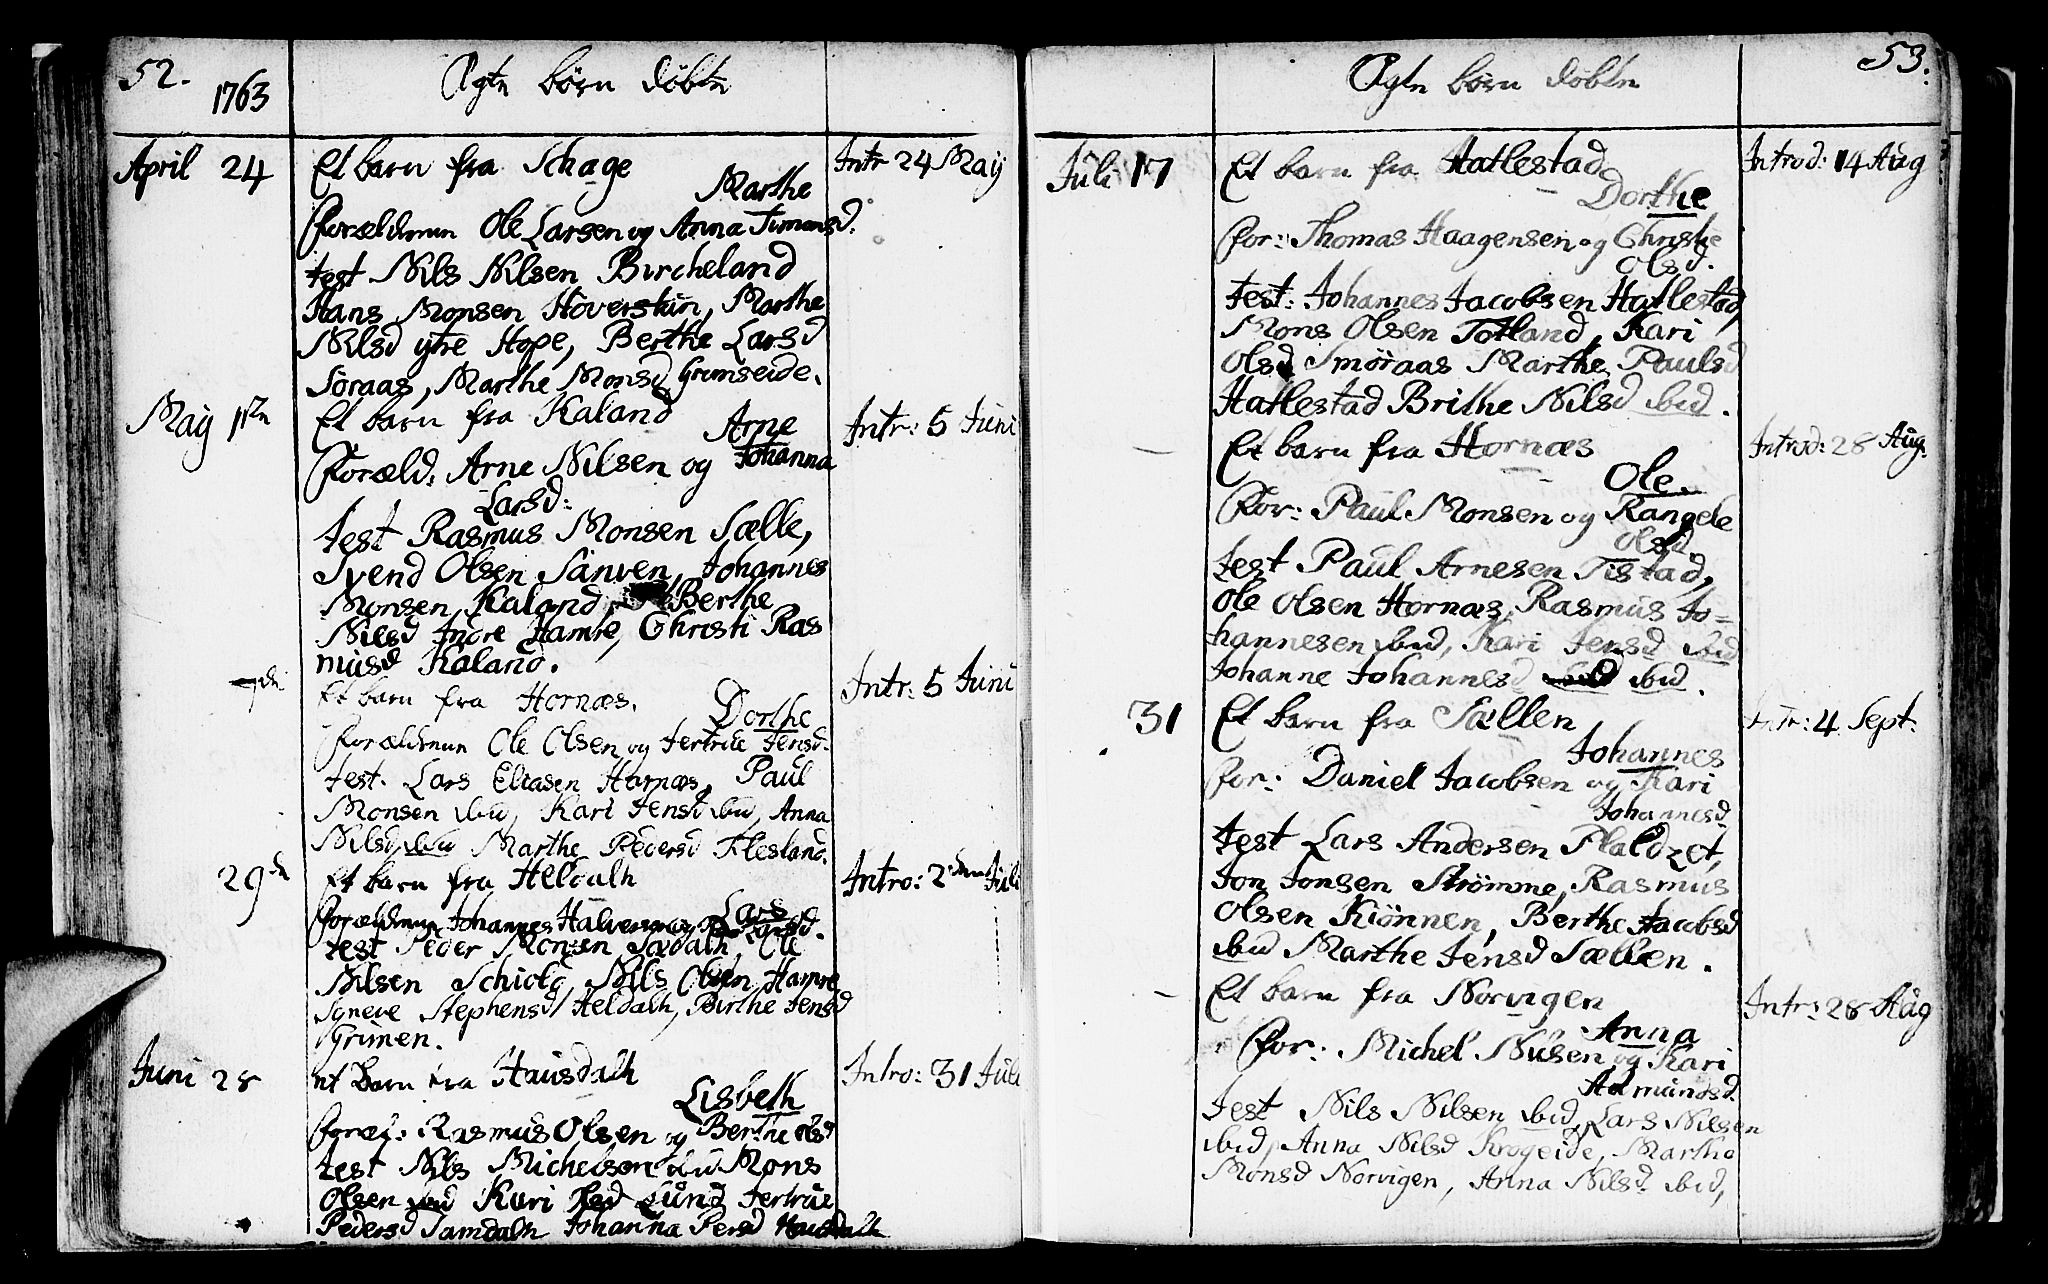 52. 1763 Ægte børn döbte
April 24 Et barn fra Schage Intr 24 Maÿ
Marthe
Forældrenn Ole Larsen og Anna Timansd.
test Nils Nilsen Bircheland
Hans Monsen Höverstün, Marthe
Nilsd ytre Hope, Berthe Larsd
Söraas, Marthe Monsd Grimseide.
Maÿ 1ste Et barn fra Kaland Intr: 5 Juni
Arne
Foræld: Arne Nilsen og Johanna
Larsd:
test Rasmus Monsen Sælle,
Svend Olsen Sänven, Johannes
Monsen Kaland, Berthe
Nilsd Indre Hamre, Christi Ras
musd Kaland.
7de Et barn fra Hornæs. Intr: 5 Juni
Dorthe
Forældrenn Ole Olsen og Jertrue Jensd.
test. Lars Eliasen Hornæs, Paul
Monsen ibid, Kari Jensd ibid, Anna
Nilsd ibid Marthe Pedersd Flesland.
29de Et barn fra Heldalh Intro: 2den Juli
Lars
Forældrenn Johannes Halversen og Larsd.
test Peder Monsen Sædalh, Ole
Nilsen Schiold, Nils Olsen Hamre
Sÿneve Stephensd Heldalh, Birthe Jensd
Grimen.
Juni 28 et barn fra Hausdalh Intro: 31 Juli
Lisbeth
Foræl: Rasmus Olsen og Berthe Olsd
test Nils Michelsen ibid Mons
Olsen ibid Kari Lund Jertrue
Pedersd Samdalh Johanna Persd Hausdalh
53.
Ægte børn döbte
Juli 17 Et barn fra Hatlestad Introd: 14 Aug
Dorthe
For: Thomas Haagensen og Christie
Olsd.
test: Johannes Jacobsen Hatlestad,
Mons Olsen Totland, Kari
Olsd Smöraas Marthe Paulsd
Hatlestad Brithe Nilsd ibid.
— Et barn fra Hornæs Introd: 28 Aug.
Ole.
For: Paul Monsen og Rangele
Olsd.
test Paul Arnesen Tistad,
Ole Olsen Hornæs, Rasmus Jo=
hannesen ibid, Kari Jensd ibid
Johanne Johannesd ibid.
31 Et barn fra Sællen Intr: 4 Sept.
Johannes
For: Daniel Jacobsen og Kari
Johannesd.
test Lars Andersen Pladzet,
Jon Jonsen Strömme, Rasmus
Olsen Kiönnen, Berthe Jacobsd
ibid Marthe Jensd Sællen.
— Et barn fra Norvigen Intr: 28 Aug
Anna
For: Michel Nilsen og Kari
Admundsd.
test Nils Nilsen ibid, Lars Nilsen
ibid, Anna Nilsd Krogeide, Martha
Monsd Norvigen, Anna Nilsd ibid,